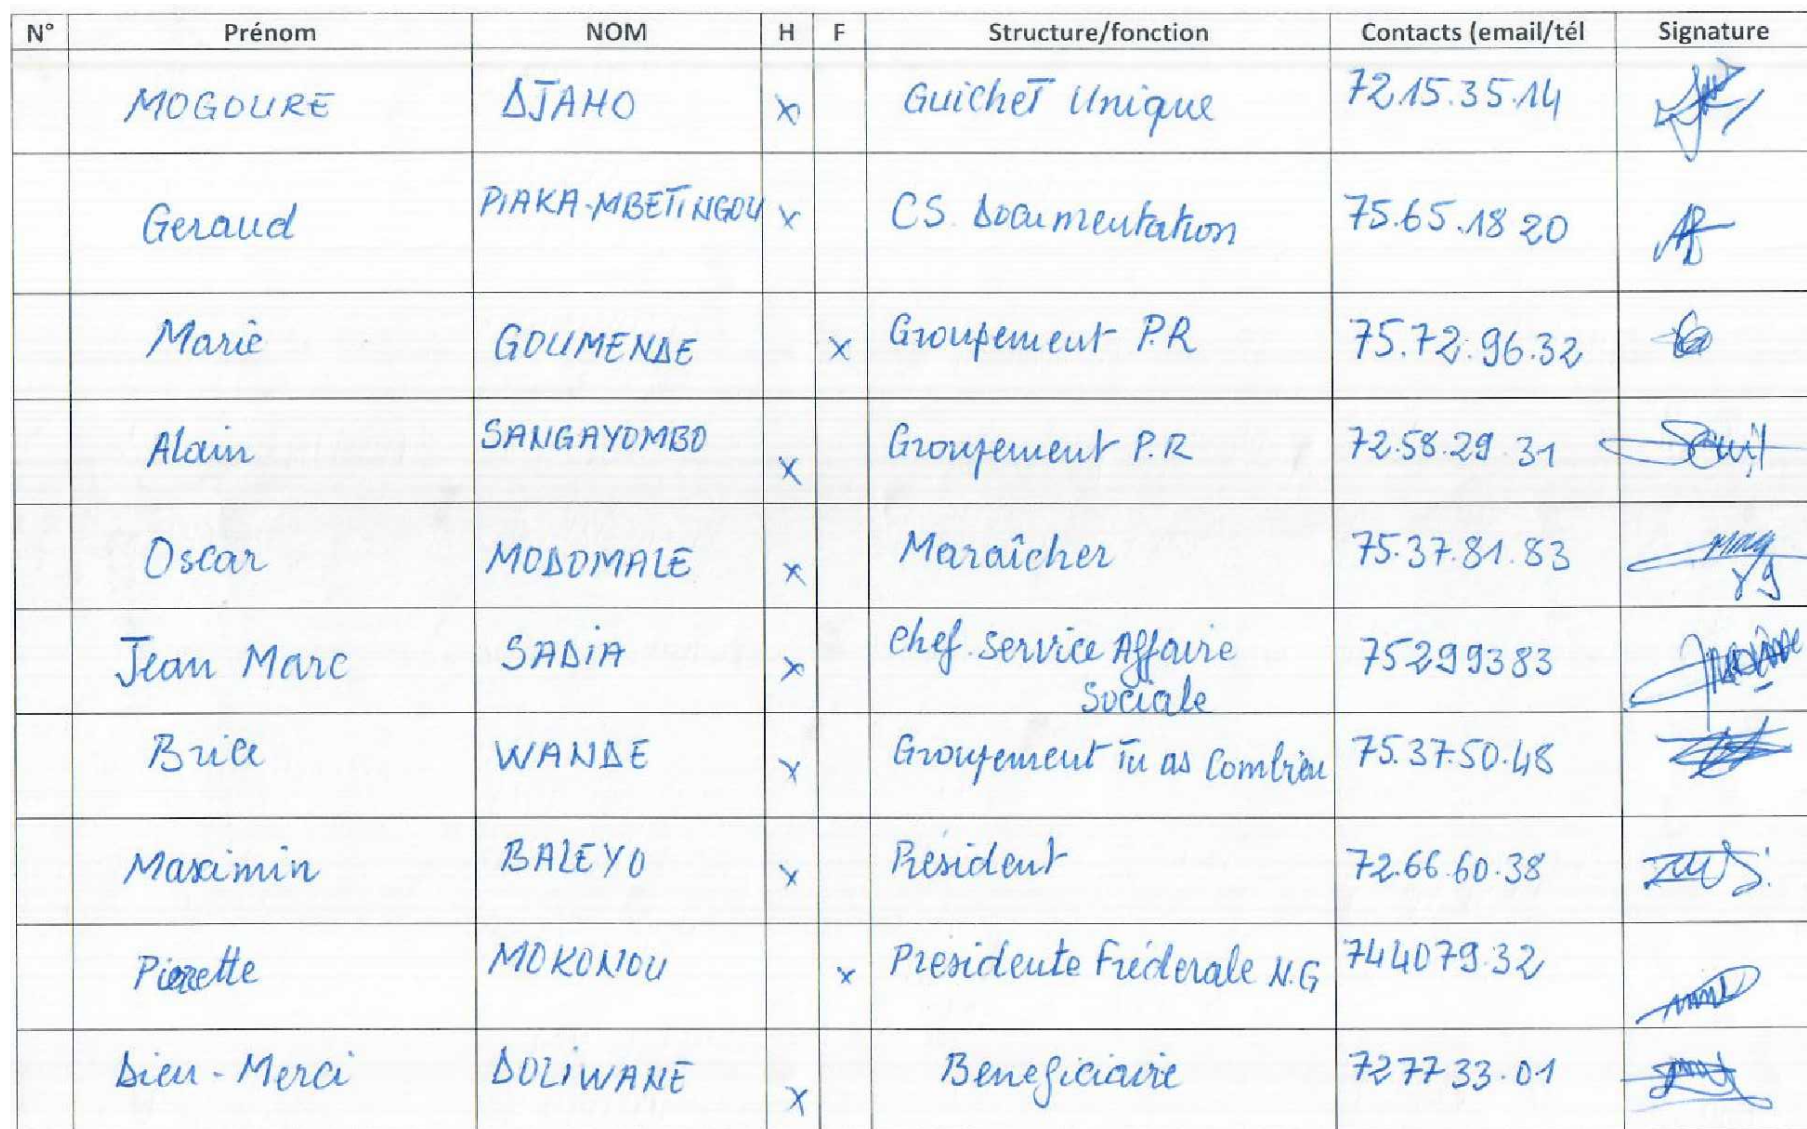 N° Prénom NOM H F Structure/fonction Contacts (email/tél Signature
MOGOURE DJAHO x Guichet Unique 72.15.35.14
Geraud PIAKA-MBETINGOU x CS. Documentation 75.65.18 20
Marie GOUMENDE x Groupement P.R 75.72.96.32
Alain SANGAYOMBO x Groupement P.R 72.58.29.31
Oscar MODOMALE x Maraîcher 75.37.81.83
Jean Marc SADIA x Chef. Service Affaire 75299383
Sociale
Brice WANDE x Groupement Tu as Combien 75.37.50.48
Maximin BALEYO x Président 72.66.60.38
Pierrette MOKONOU x Presidente Fréderale N.G 744079.32
Dieu-Merci DOLIWANE x Beneficiaire 727733.01